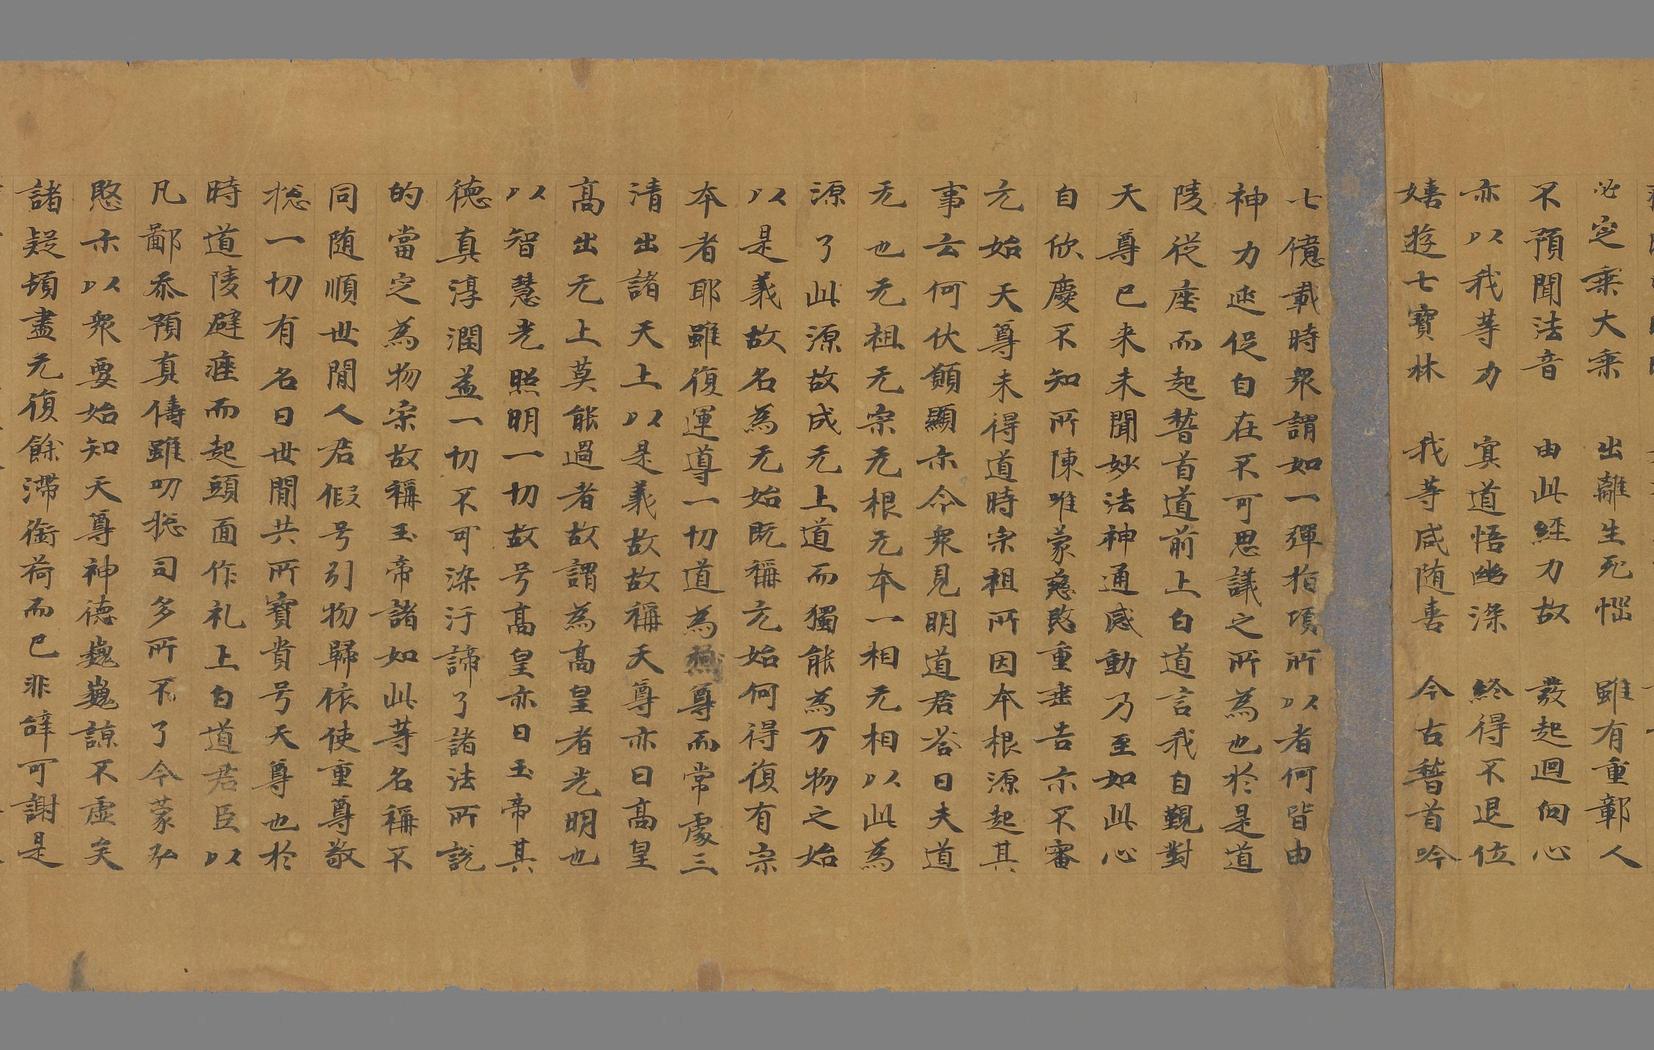 必定乘大乘 出離生死惱 雖有重鄣人
不預聞法音 由此經力故 發起迴向心
亦以我等力 冥道悟幽深 終得不退位
嬉遊七寶林 我等咸随喜 今古𥡴首吟
七億載時衆謂如一彈指頃所以者何皆由
神力延促自在不可思議之所為也於是道
陵從座而起𥡴首道前上白道言我自觀對
天尊已来未聞妙法神通感動乃至如此心
自欣慶不知所陳唯蒙慈愍重垂告示不審
元始天尊未得道時宗祖所因本根源起其
事云何伏願顯示令衆見明道君答曰夫道
无也无祖无宗无根无本一相无相以此為
源了此源故成无上道而獨能為万物之始
以是義故名為元始既稱元始何得復有宗
本者耶雖復運導一切道為極尊而常處三
清出諸天上以是義故故稱天尊亦曰髙皇
髙出无上莫能過者故謂為髙皇者光明也
以智慧光照明一切故号髙皇亦曰玉帝其
德真淳潤益一切不可染汙諦了諸法所説
的當定為物宗故稱玉帝諸如此等名稱不
同随順世間人君假号引物歸依使重尊敬
惣一切有名曰世間共所寶貴号天尊也於
時道陵避座而起頭面作礼上白道君臣以
凡鄙忝預真儔雖叨惣司多所不了今蒙弘
愍示以衆要始知天尊神德巍巍諒不虚矣
諸疑頓盡无復餘滞銜荷而已非辝可謝是